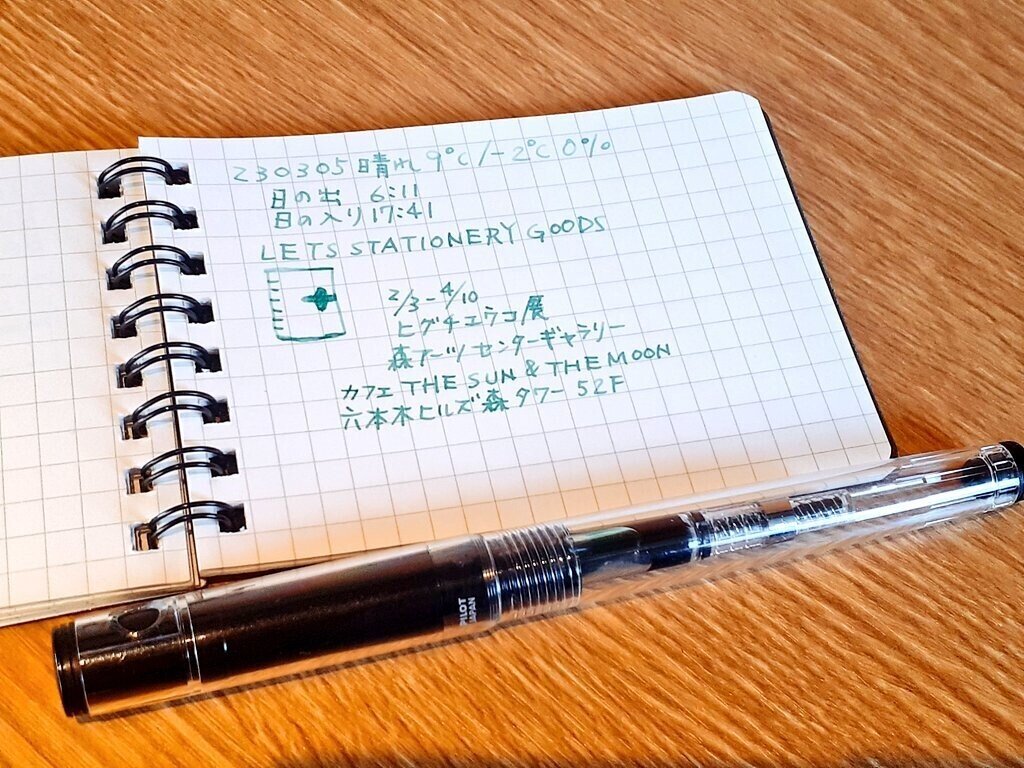 230305 晴れ 9°C/-2°C 0%
日の出 6:11
日の入り 17:41
LETS STATIONERY GOODS
2/3-4/10
ヒグチユウコ展
森アーツセンターギャラリー
カフェ THE SUN & THE MOON
六本木ヒルズ森タワー 52F
PILOT
JAPAN